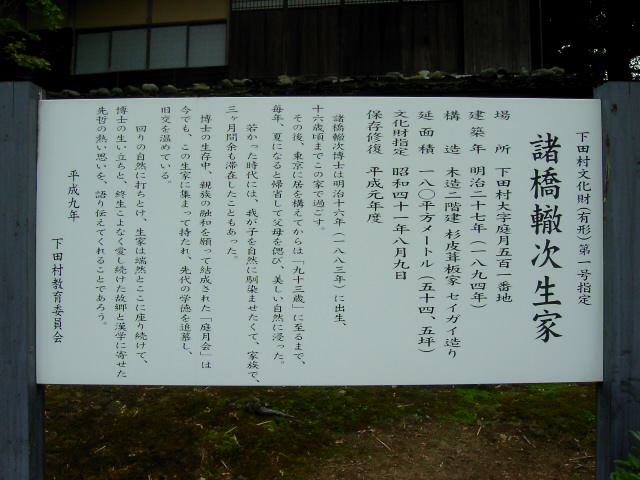 下田村文化財(有形)第一号指定
諸橋轍次生家
場所 下田村大字庭月五百一番地
建築年 明治二十七年(一八九四年)
構造 木造二階建 杉皮葺板家 セイガイ造り
延面積 一八〇平方メートル(五十四、五坪)
文化財指定 昭和四十一年八月九日
保存修復 平成元年度
諸橋轍次博士は明治十六年(一八八三年)に出生、
十六歳頃までこの家で過ごす。
その後、東京に居を構えてからは「九十三歳」に至るまで、
毎年、夏になると帰省して父母を偲び、美しい自然に浸った。
若かった時代には、我が子を自然に馴染ませたくて、家族で、
三ヶ月間余も滞在したこともあった。
博士の生存中、親族の融和を願って結成された「庭月会」は
今でも、この生家に集まって持たれ、先代の学徳を追慕し、
旧交を温めている。
回りの自然に打ちとけ、生家は端然とここに座り続けて、
博士の生い立ちと、終生こよなく愛し続けた故郷と漢学に寄せた
先哲の熱い思いを、語り伝えてくれることであろう。
平成九年
下田村教育委員会